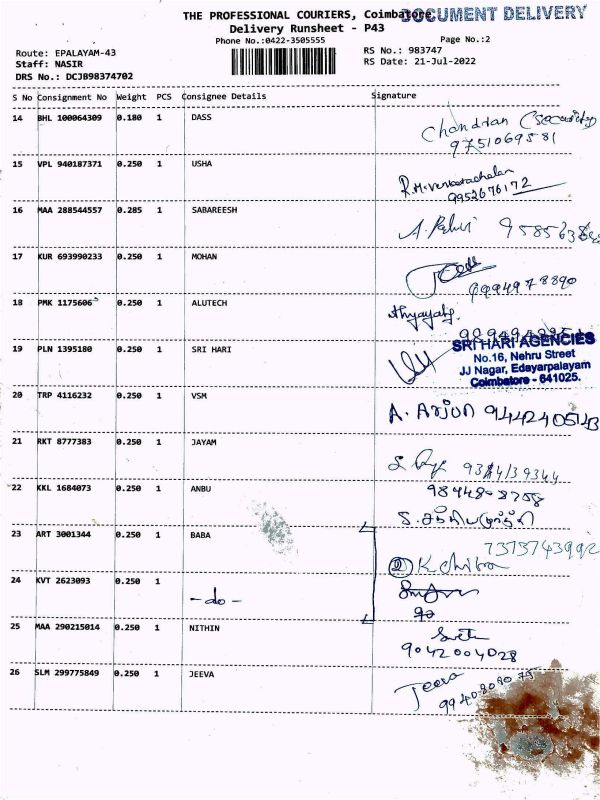 THE PROFESSIONAL COURIERS, Coimbatore.
DOCUMENT DELIVERY
Delivery Runsheet - P43
Phone No.:0422-3505555
Page No.:2
Route: EPALAYAM-43
RS No.: 983747
Staff: NASIR
RS Date: 21-Jul-2022
DRS No.: DCJB98374702
S No Consignment No Weight PCS Consignee Details Signature
14 BHL 100064309 0.180 1 DASS
Chandran (Security)
9751069581
15 VPL 940187371 0.250 1 USHA
R.M.Venkatachalan
9952676172
16 MAA 288544557 0.285 1 SABAREESH
17 KUR 693990233 0.250 1 MOHAN
8994978890
18 PMK 1175606 0.250 1 ALUTECH
19 PLN 1395180 0.250 1 SRI HARI
SRI HARI AGENCIES
No.16, Nehru Street
JJ Nagar, Edayarpalayam
Coimbatore - 641025.
20 TRP 4116232 0.250 1 VSM
A. Arjun 9442405143
21 RKT 8777383 0.250 1 JAYAM
22 KKL 1684073 0.250 1 ANBU
23 ART 3001344 0.250 1 BABA
7373743992
② K chitra
24 KVT 2623093 0.250 1 -do-
25 MAA 290215014 0.250 1 NITHIN
9042004028
26 SLM 299775849 0.250 1 JEEVA
Jeeva